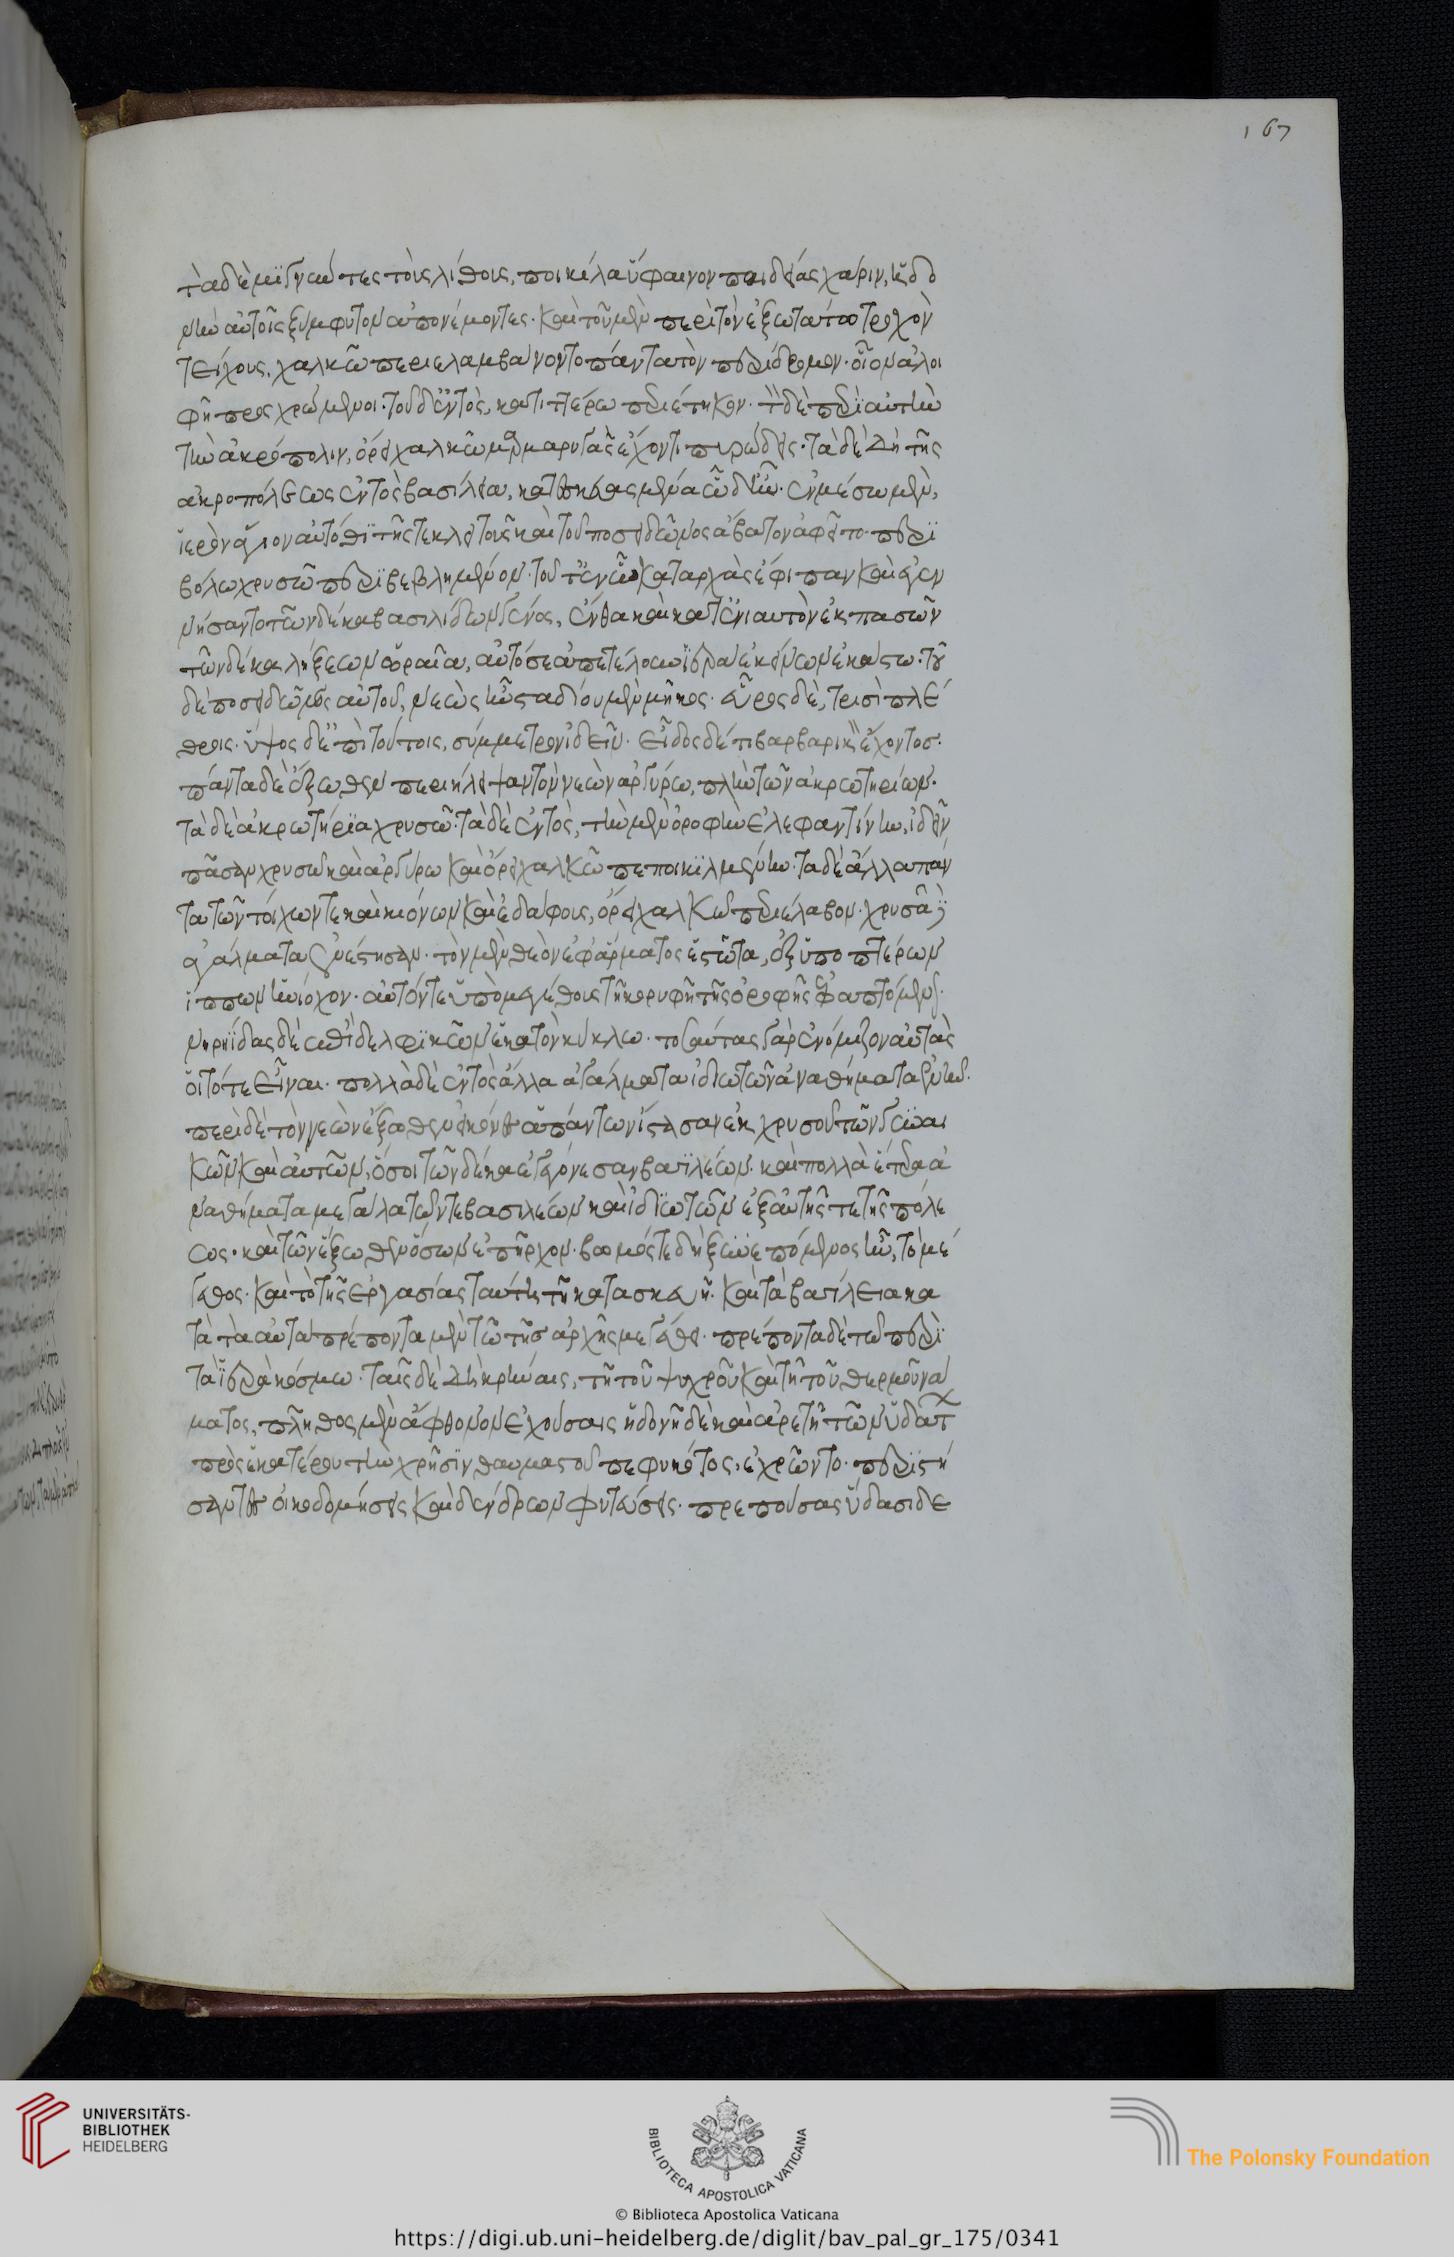 167
τὰ δὲ μιγνύντες τοὺς λίθους, ποικίλα ὕφαινον παιδιάς χάριν, ἡδο
νὴν αὐτοῖς ξύμφυτον ἀπονέμοντες. καὶ τοῦ μὲν περὶ τὸν ἐξωτάτω τροχὸν
τείχους, χαλκῶ περιελαμβάνοντο πάντα τὸν περίδρομον. οἷον ἀλοι
φῆ προσχρώμενοι. τοῦ δ' ἐντὸς, καττιτέρω περιέτηκον. τὸν δὲ περὶ αὐτὴν
τὴν ἀκρόπολιν, ὀρειχαλκῶ μαρμαρυγὰς ἔχοντι πυρώδεις. τὰ δὲ δὴ τῆς
ἀκροπόλεως ἐντὸς βασίλεια, κατεσκευασμένα ὧδ' ἦν. ἐν μέσω μὲν,
ἱερὸν ἅγιον αὐτόθι τῆς τε κλειτοῦς καὶ τοῦ ποσειδῶνος ἄβατον ἀφεῖτο. περι
βόλω χρυσῶ περιβεβλημένον. τοῦτ' ἐν ὧ καταρχὰς ἐφίτυσαν καὶ ἐγέν
νησαν τὸ τῶν δέκα βασιλιδῶν γένος, ἔνθα καὶ κατ' ἐνιαυτὸν ἐκ πασῶν
τῶν δέκα λήξεων ὡραῖα, αὐτόσε ἀπετέλουν ἱερὰ ἐκείνων ἑκάστω. τοῦ
δὲ ποσειδῶνος αὐτοῦ, νεὼς ἦν σταδίου μὲν μῆκος. εὖρος δὲ, τρισὶ πλέ
θροις. ὕψος δ' ἐπὶ τούτοις, σύμμετρον ἰδεῖν. εἶδος δέ τι βαρβαρικὸν ἔχοντος.
πάντα δὲ ἔξωθεν περιήλειψαν τὸν νεὼν ἀργύρω, πλὴν τῶν ἀκρωτηρίων.
τὰ δὲ ἀκρωτήρια χρυσῶ. τὰ δὲ ἐντὸς, τὴν μὲν ὀροφὴν ἐλεφαντίνην, ἰδεῖν
πᾶσαν χρυσῶ καὶ ἀργύρω καὶ ὀρειχαλκῶ πεποικιλμένην. τὰ δὲ ἄλλα πάν
τα τῶν τοίχων τε καὶ κιόνων καὶ ἐδάφους, ὀρειχαλκῶ περιέλαβον. χρυσᾶ δὲ
ἀγάλματα ἐνέστησαν. τὸν μὲν θεὸν ἐφ' ἅρματος ἑστῶτα, ἓξ ὑποπτέρων
ἵππων ἡνίοχον. αὐτόν τε ὑπὸ μεγέθους τῆ κορυφῆ τῆς ὀροφῆς ἐφαπτόμενον.
νηρηίδας δὲ ἐπὶ δελφίνων ἑκατὸν κύκλω. τοσαύτας γὰρ ἐνόμιζον αὐτὰς
οἱ τότε εἶναι. πολλὰ δὲ ἐντὸς ἄλλα ἀγάλματα ἰδιωτῶν ἀναθήματα ἐνῆν.
περὶ δὲ τὸν νεὼν ἔξωθεν εἰκόνες ἁπάντων ἕστασαν ἐκ χρυσοῦ τῶν γυναι
κῶν καὶ αὐτῶν, ὅσοι τῶν δέκα ἐγεγόνεσαν βασιλέων. καὶ πολλὰ ἕτερα ἀ
ναθήματα μεγάλα τῶν τε βασιλέων καὶ ἰδιωτῶν ἐξ αὐτῆς τε τῆς πόλε
ως. καὶ τῶν ἔξωθεν ὅσων ἐπῆρχον. βωμός τε δὴ ξυνεπόμενος ἦν, τὸ μέ
γεθος. καὶ τὸ τῆς ἐργασίας ταύτη τῆ κατασκευῆ. καὶ τὰ βασίλεια κα
τὰ τὰ αὐτὰ πρέποντα μὲν τῶ τῆς ἀρχῆς μεγέθει. πρέποντα δὲ τῶ περὶ
τὰ ἱερὰ κόσμω. ταῖς δὲ δὴ κρήναις, τῆ τοῦ ψυχροῦ καὶ τῆ τοῦ θερμοῦ νά
ματος, πλῆθος μὲν ἄφθονον ἐχούσαις ἡδονῆ δὲ καὶ ἀρετῆ τῶν ὑδάτων
πρὸς ἑκατέρου τὴν χρῆσιν θαυμαστοῦ πεφυκότος, ἐχρῶντο. περιστή
σαντες οἰκοδομήσεις καὶ δένδρων φυτεύσεις. πρεπούσας ὕδασι δε
UNIVERSITÄTS-
BIBLIOTHEK
HEIDELBERG
BIBLIOTECA APOSTOLICA VATICANA
The Polonsky Foundation
© Biblioteca Apostolica Vaticana
https://digi.ub.uni-heidelberg.de/diglit/bav_pal_gr_175/0341